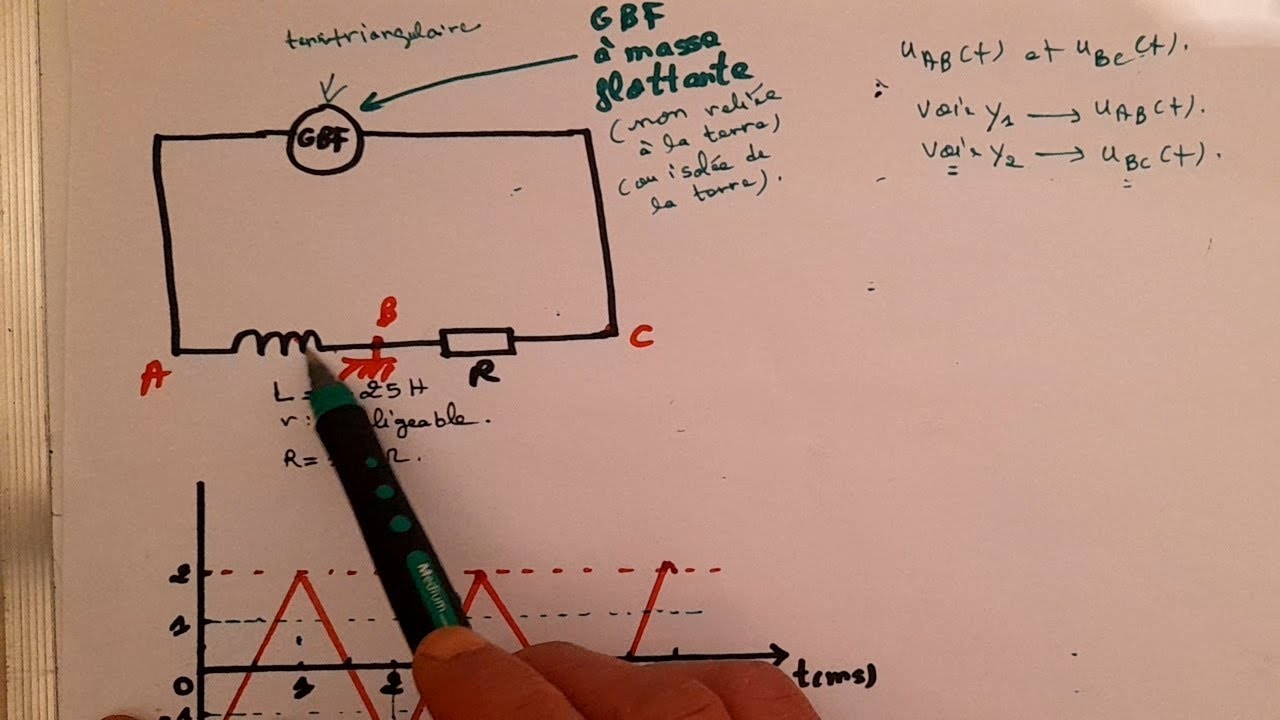 tens° triangulaire
GBF
à masse
flottante
(non reliée
à la terre)
(ou isolée de
la terre).
GBF
u_AB(t) et u_BC(t).
Voie Y1 → u_AB(t).
Voie Y2 → u_BC(t).
B
A
C
R
L= 25H
r: ligeable.
R= Ω.
2
1
0
1
2
t(ms)
-1
Medium